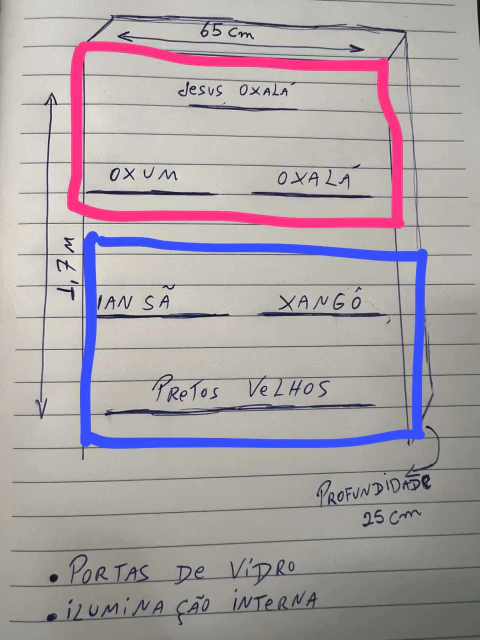 65 cm
Jesus OXALÁ
OXUM OXALÁ
1,7 m
IANSÃ XANGÔ
PRETOS VELHOS
PROFUNDIDADE
25 cm
• PORTAS DE VIDRO
• ILUMINAÇÃO INTERNA